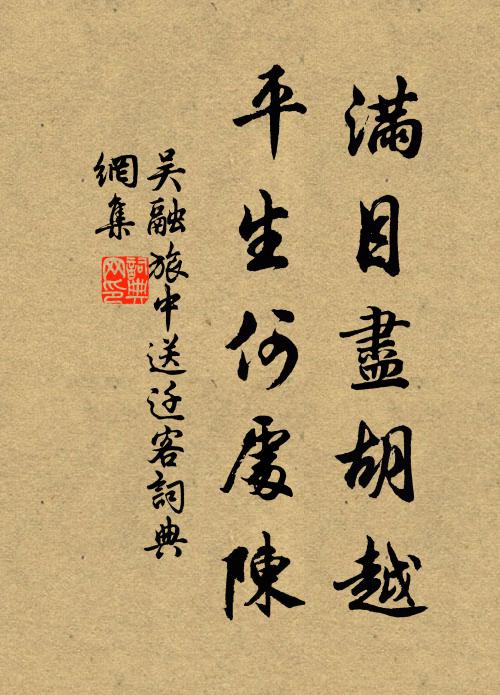 滿目盡胡越
平生何處陳
吴融旅中送迁客詞典
網集
詞典
网印